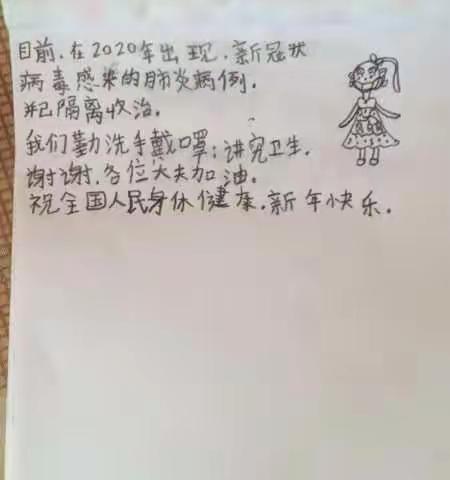 目前.在2020年出现.新冠状
病毒感染的肺炎病例.
并已隔离收治。
我们勤洗手戴口罩;讲究卫生.
谢谢.各位大夫加油。
祝全国人民身体健康.新年快乐.